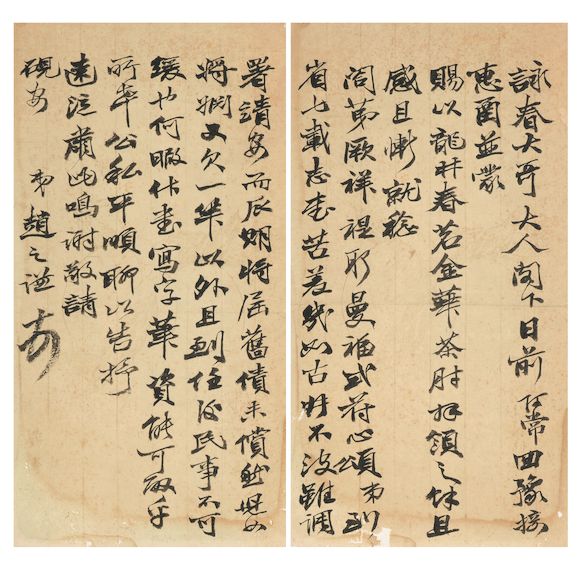 詠春大哥大人閣下日前何常回豫接
惠函並蒙
賜以龍井春茗金華茶肘拜領之餘且
感且慚就稔
閤第厥祥禔躬曼福式符心頌弟到
省七載志壹苦差幾如古井不波雖調
署靖安而辰期將屆舊債未償然
將又欠一年以外且到任後民事不可
緩也何暇作畫寫字筆資能可敵乎
所幸公私平順聊以告抒
遠注肅此鳴謝敬請
硯安 弟趙之謙